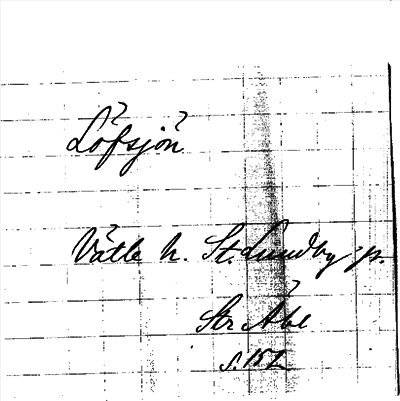 Löfsjön
Vätle h. St. Lundby p.
Str Åbl
s. 152